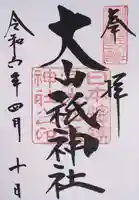 奉拝
大山祇神社
令和六年四月十日